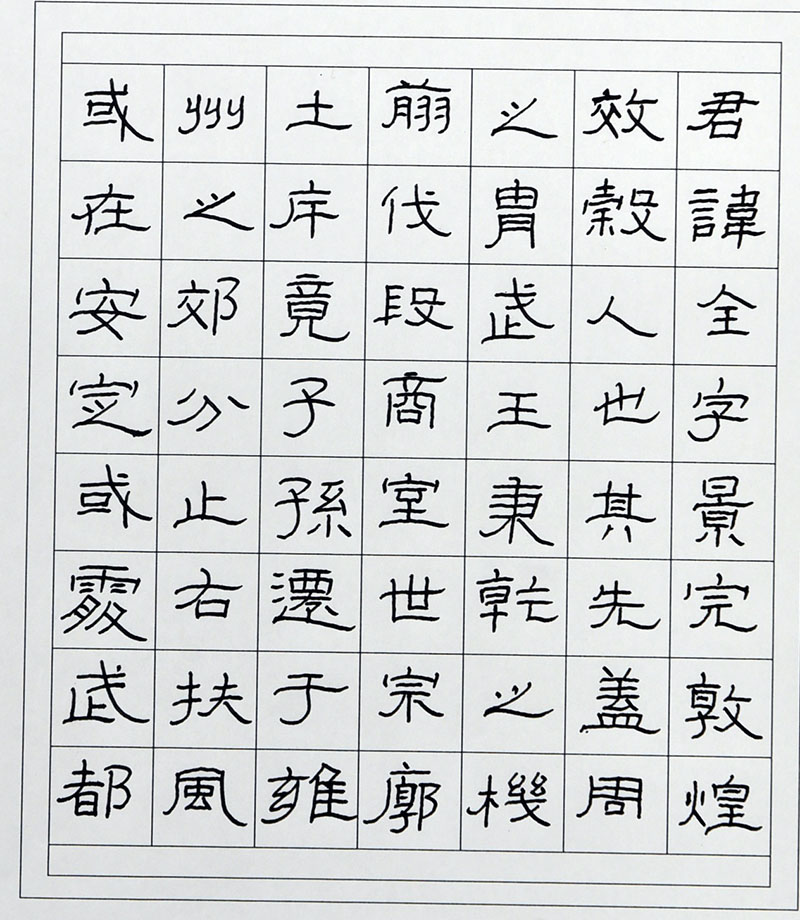 君諱全字景完敦煌
效穀人也其先蓋周
之胄武王秉乾之機
翦伐殷商室世宗廓
土斥竟子孫遷于雍
州之郊分止右扶風
或在安定或處武都